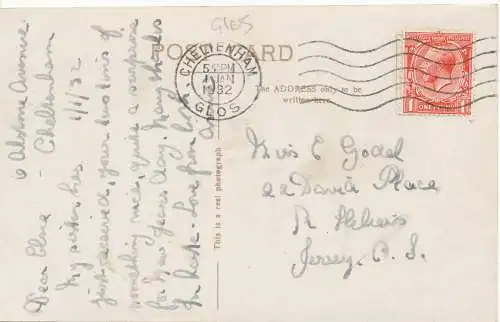 GLOS
POST CARD
CHELTENHAM
5 PM
1 JAN
1932
GLOS
The ADDRESS only to be
written here.
This is a real photograph
6 Alstone Avenue
Cheltenham
1/1/32
Dear Elvie
My sister has
just received, your
something nice, quite a surprise
for New Years day. Many thanks
In haste - Love from
Miss E Godel
22 Davids Place
St Heliers
Jersey. C. I.